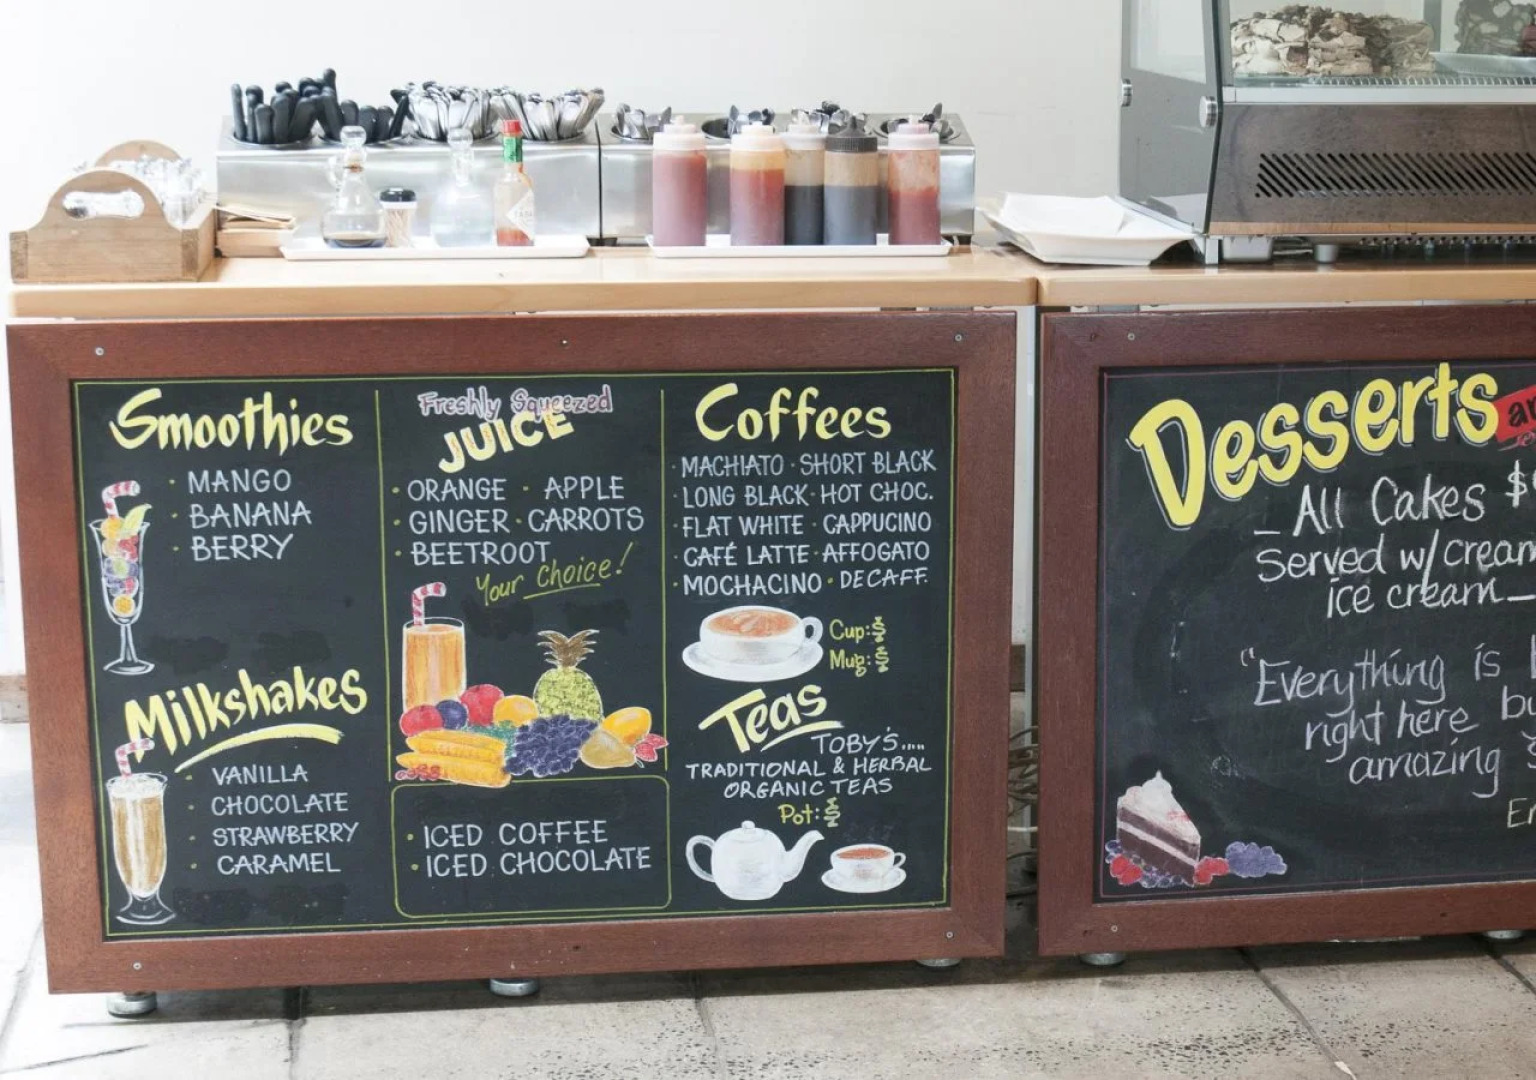 Smoothies
· MANGO
· BANANA
· BERRY
Milkshakes
· VANILLA
· CHOCOLATE
· STRAWBERRY
· CARAMEL
Freshly Squeezed
JUICE
· ORANGE · APPLE
· GINGER · CARROTS
· BEETROOT
Your choice!
· ICED COFFEE
· ICED CHOCOLATE
Coffees
· MACHIATO · SHORT BLACK
· LONG BLACK · HOT CHOC.
· FLAT WHITE · CAPPUCINO
· CAFÉ LATTE · AFFOGATO
· MOCHACINO · DECAFF.
Cup: $
Mug: $
Teas
TOBY'S....
TRADITIONAL & HERBAL
ORGANIC TEAS
Pot: $
Desserts
_ All Cakes $
Served w/cream
ice cream _
"Everything is
right here
amazing